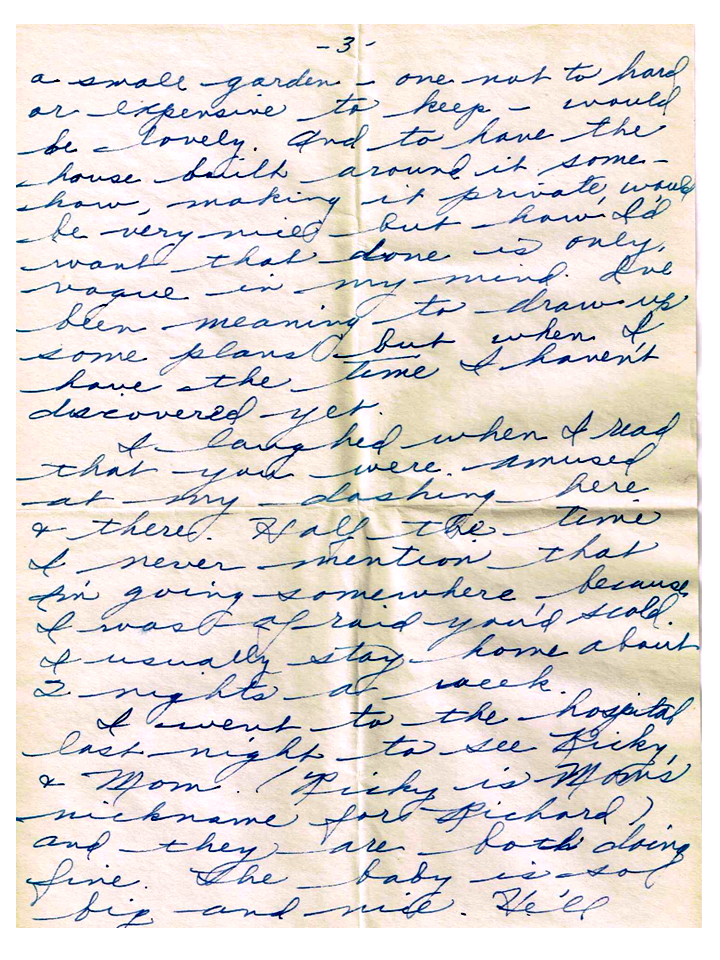 -3-
a small garden - one not to hard
or expensive to keep - would
be lovely. And to have the
house built around it some-
how, making it private, would
be very nice - but how I'd
want that done is only
vague in my mind. I've
been meaning to draw up
some plans but when I
have the time I haven't
discovered yet.
I laughed when I read
that you were amused
at my dashing here
& there. Half the time
I never mention that
I'm going somewhere because
I was afraid you'd scold.
I usually stay home about
2 nights a week.
I went to the hospital
last night to see Ricky
& Mom. (Ricky is Mom's
nickname for Richard)
and they are both doing
fine. The baby is so
big and nice. He'll